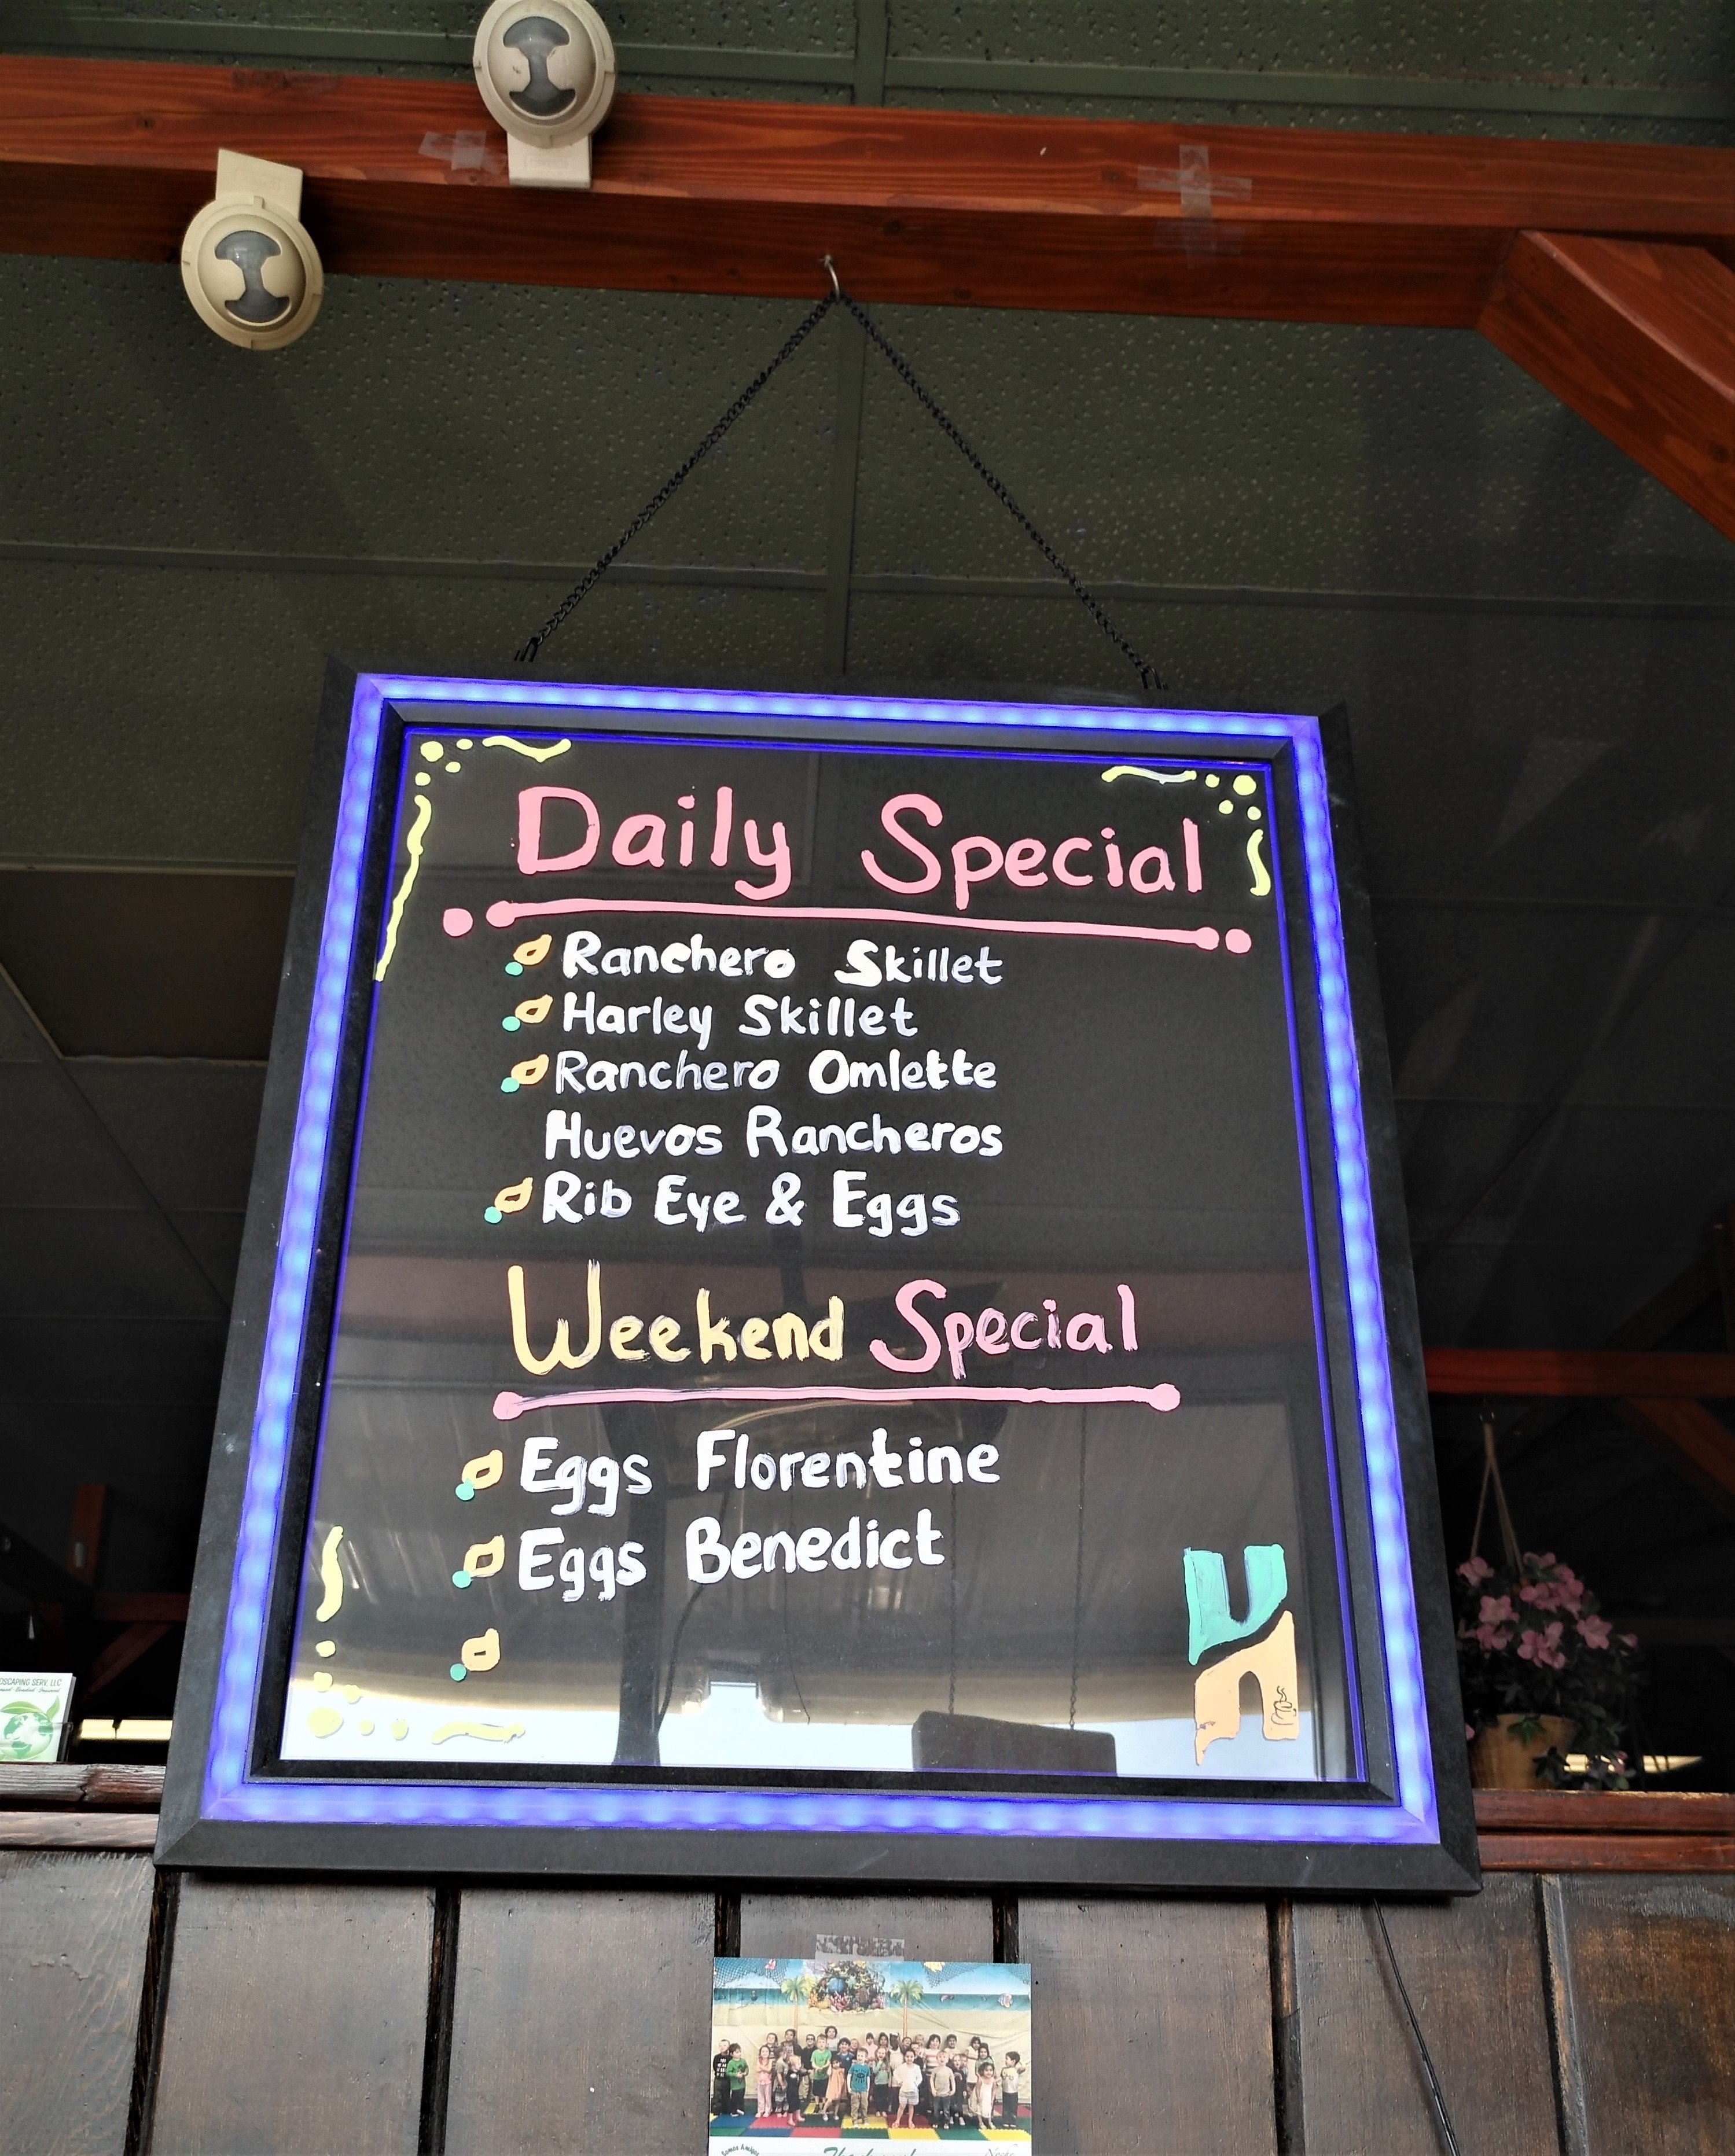 Daily Special
Ranchero Skillet
Harley Skillet
Ranchero Omlette
Huevos Rancheros
Rib Eye & Eggs
Weekend Special
Eggs Florentine
Eggs Benedict
SERV. LLC
Somos Amigos